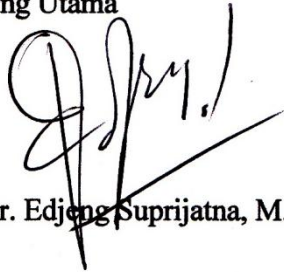 ng Utama
r. Edjeng Suprijatna, M.